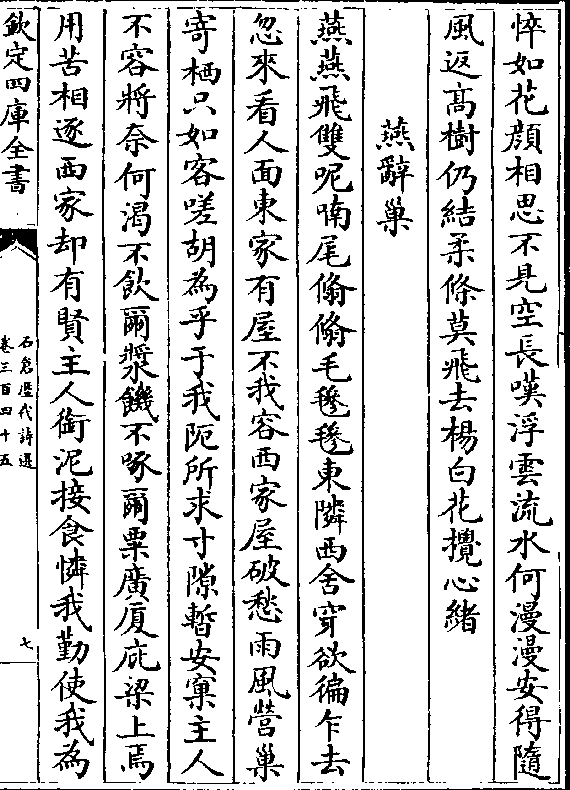 悴如花顔相思不見空長嘆浮雲流水何漫漫安得隨
風返髙樹仍結柔條莫飛去楊白花攪心緒
燕辭巢
燕燕飛雙呢喃尾翛翛毛毿毿東隣西舍穿欲徧乍去
忽來看人面東家有屋不我容西家屋破愁雨風營巢
寄栖只如客嗟胡為乎于我阨所求寸隙暫安窠主人
不容將奈何渴不飲爾漿饑不啄爾粟廣厦庇梁上焉
用苦相逐西家却有賢主人銜泥接食憐我勤使我為
欽定四庫全書
石倉歴代詩選
卷三百四十五
七